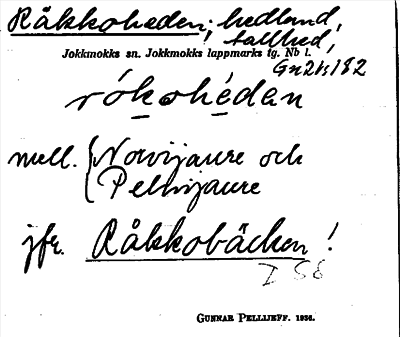 Råkkoheden, hedland,
tallhed,
Jokkmokks sn. Jokkmokks lappmarks tg. Nb l.
rókohédan
mell. Norvijaure och
Pelkijaure
jfr. Råkkobäcken!
I SE
GUNNAR PELLIJEFF. 1936.